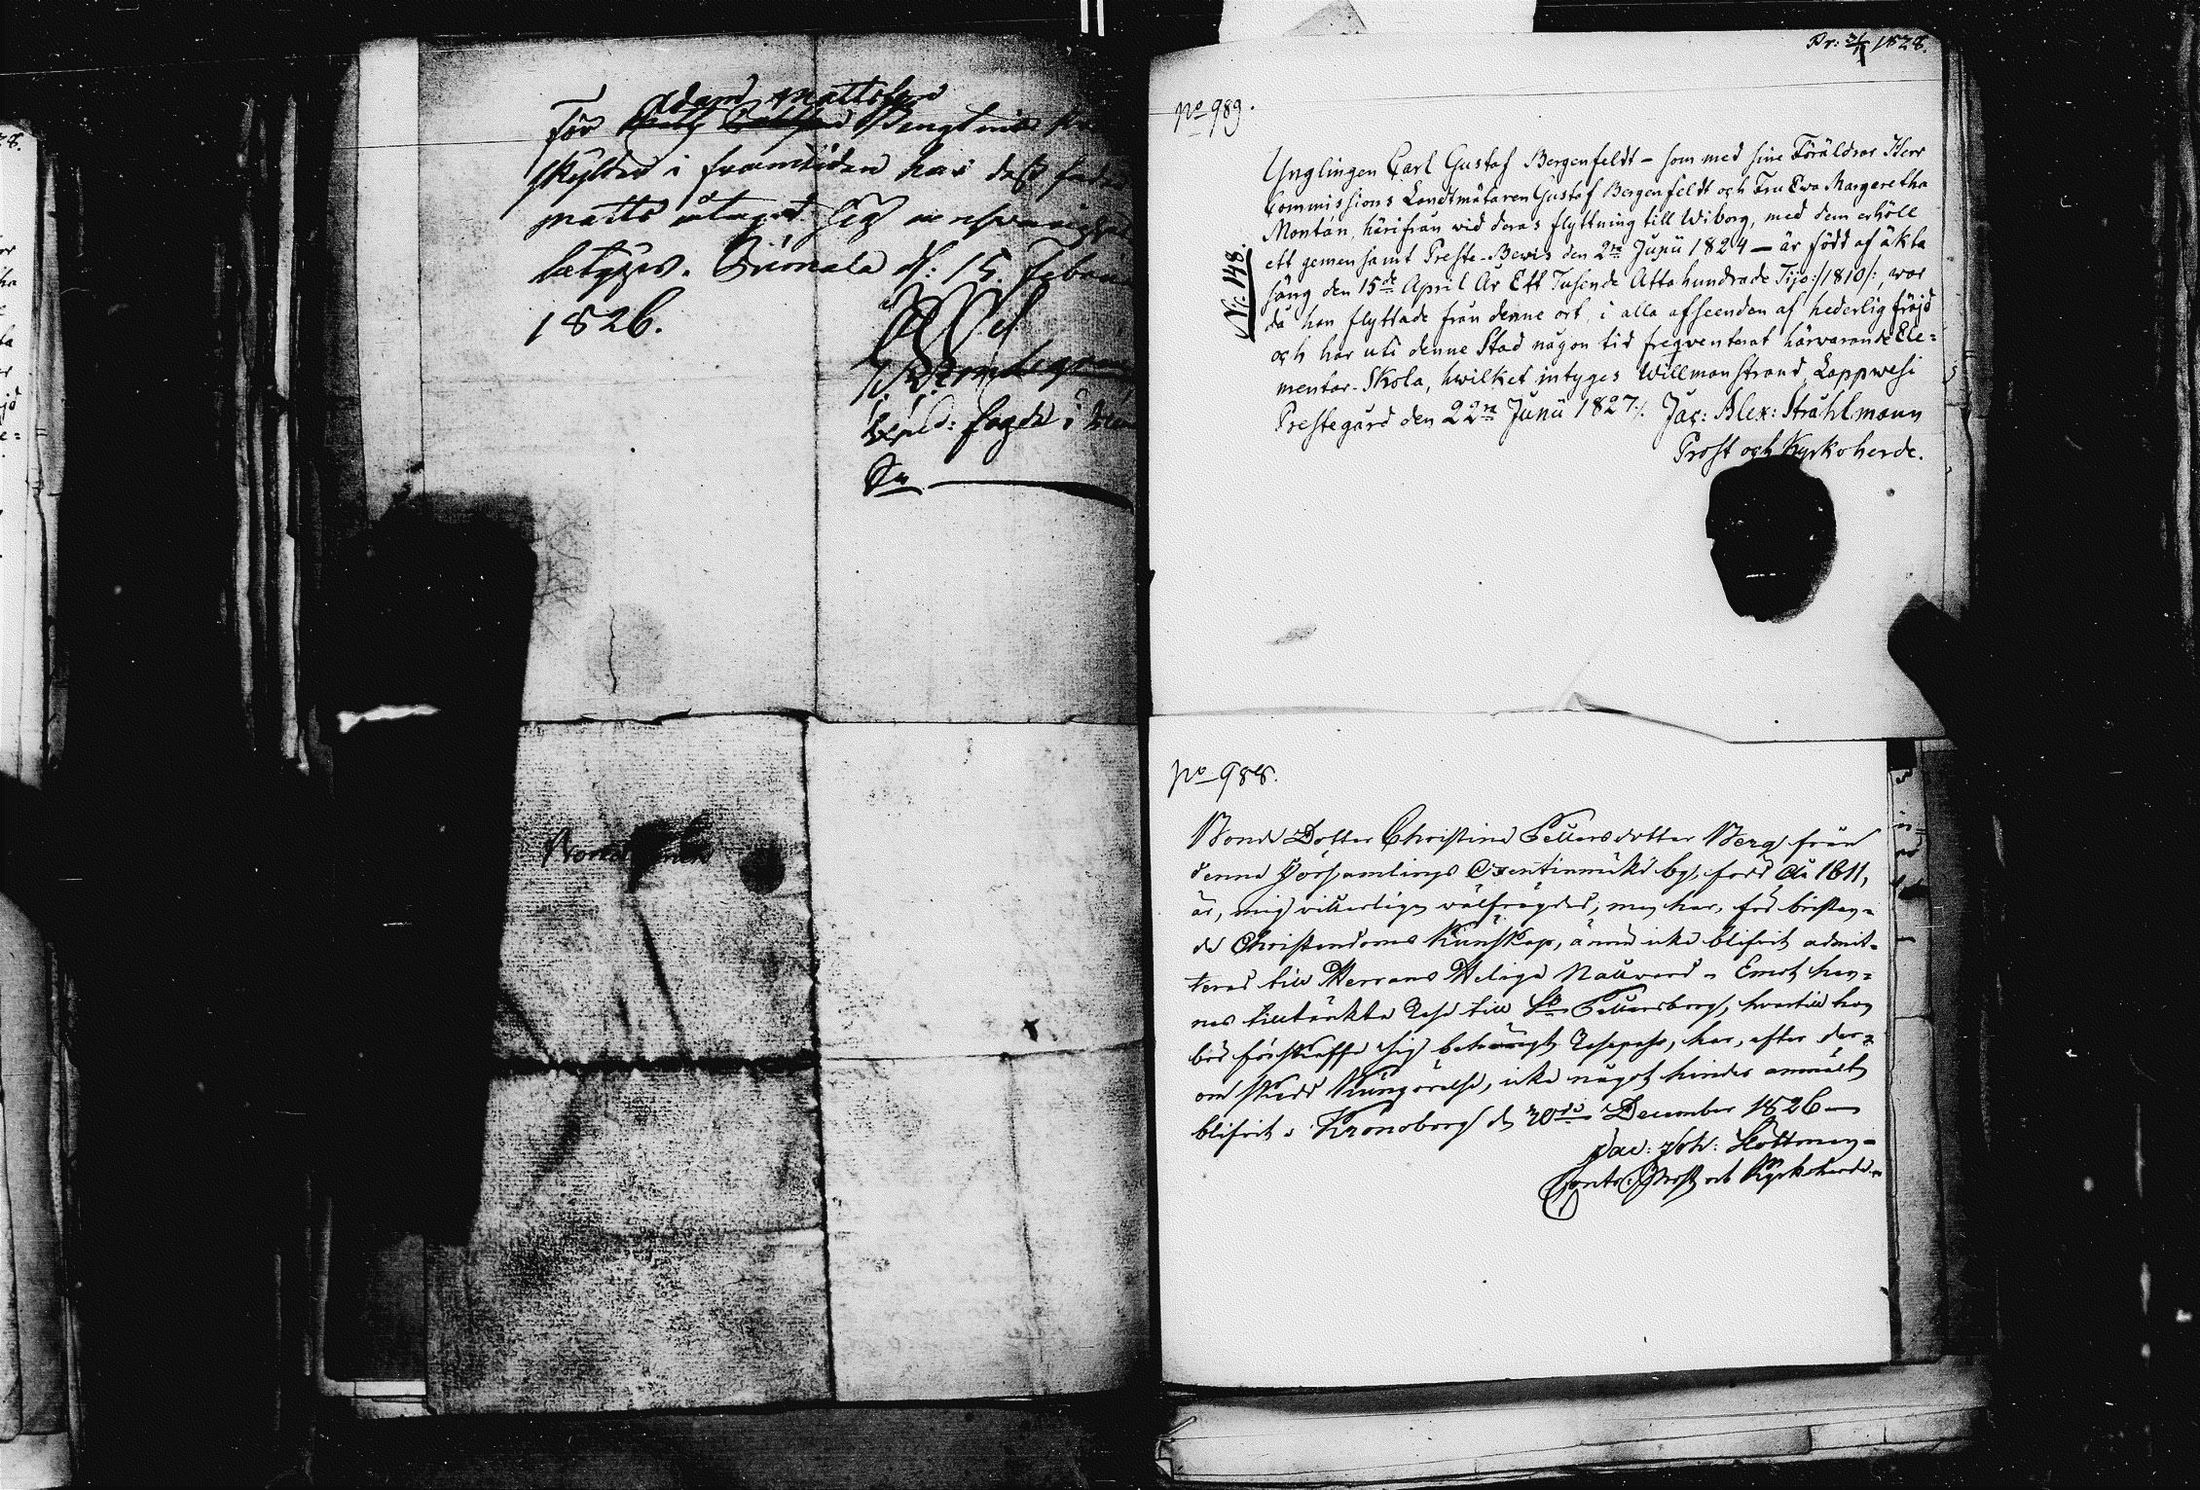 För Adam Mattsson Bengtsius
skylder i framtiden har dess fader
Matts åtagit sig
betyges. Sunala d: 15 Febru
1826.
Pr: 3/1 1828.
No 989.
Nr: 148.
Ynglingen Carl Gustaf Bergenfeldt – som med sine Föräldrar Herr
Commissions Landtmätaren Gustaf Bergenfeldt och Fru Ewa Margaretha
Montàn, härifrån wid deras flyttning till Wiborg, med dem erhöll
ett gemensamt Preste-Bewis den 2ra Junii 1824 – är född af äkta
säng den 15de April År Ett Tusende Åtta hundrade Tijo :/1810/:, war
då han flyttade från denne ort, i alla afseenden af hederlig fräjd
och har uti denne Stad någon tid freqventerat härvarande Ele=
mentar-Skola, hwilket intyges Willmanstrand, Lappwesi
Prestegård den 22ra Junii 1827 ./. Jac: Alex: Strahlmann
Prost och Kyrkoherde.
No 988.
Bonde Dotter Christina Pettersdotter Berg från
denna Församlings by, född År 1811,
är, mig vitterligen välfrägdad, men har, för bristan=
de Christendoms Kunskap, ännu icke blifvit admit=
terad till Herrans Heliga Nattvard. Emot hen=
nes tilltänkta Resa till St Pettersborg, hvartill hon
bör förskaffa sig behörigt Resepass, har, efter der=
om skedd Kungörelse, icke något hinder anmält
blifvit. Kronoborg d. 30de December 1826 –
Jac: Joh: Hottman
Contr. Prost och Kyrkoherde